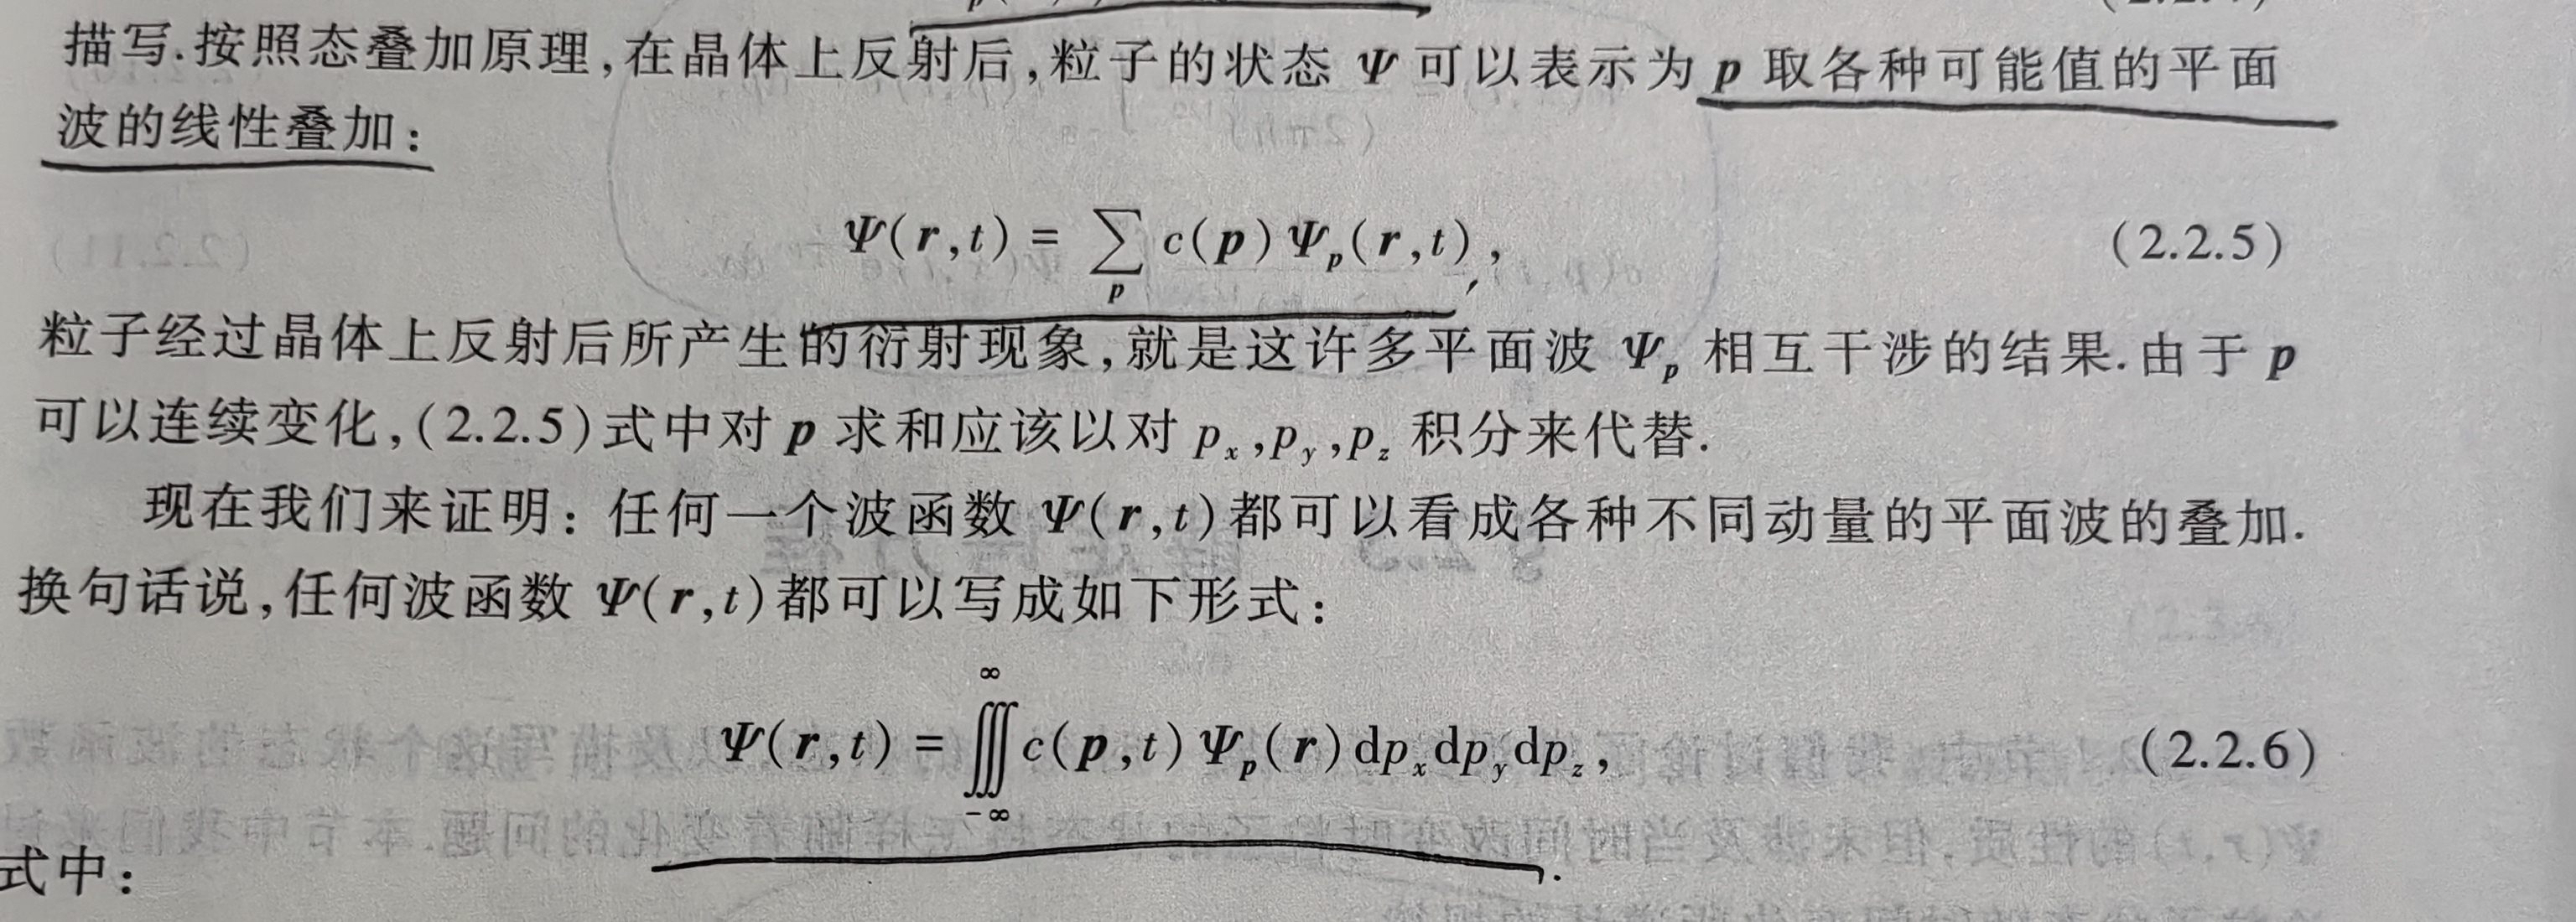 描写.按照态叠加原理,在晶体上反射后,粒子的状态 Ψ 可以表示为 p 取各种可能值的平面
波的线性叠加:
Ψ(r,t) = ∑ₚ c(p) Ψₚ(r,t), (2.2.5)
粒子经过晶体上反射后所产生的衍射现象,就是这许多平面波 Ψₚ 相互干涉的结果.由于 p
可以连续变化,(2.2.5)式中对 p 求和应该以对 pₓ,p_y,p_z 积分来代替.
现在我们来证明:任何一个波函数 Ψ(r,t)都可以看成各种不同动量的平面波的叠加.
换句话说,任何波函数 Ψ(r,t)都可以写成如下形式:
Ψ(r,t) = ∭_{-∞}^{∞} c(p,t) Ψₚ(r)dpₓdp_ydp_z, (2.2.6)
式中: